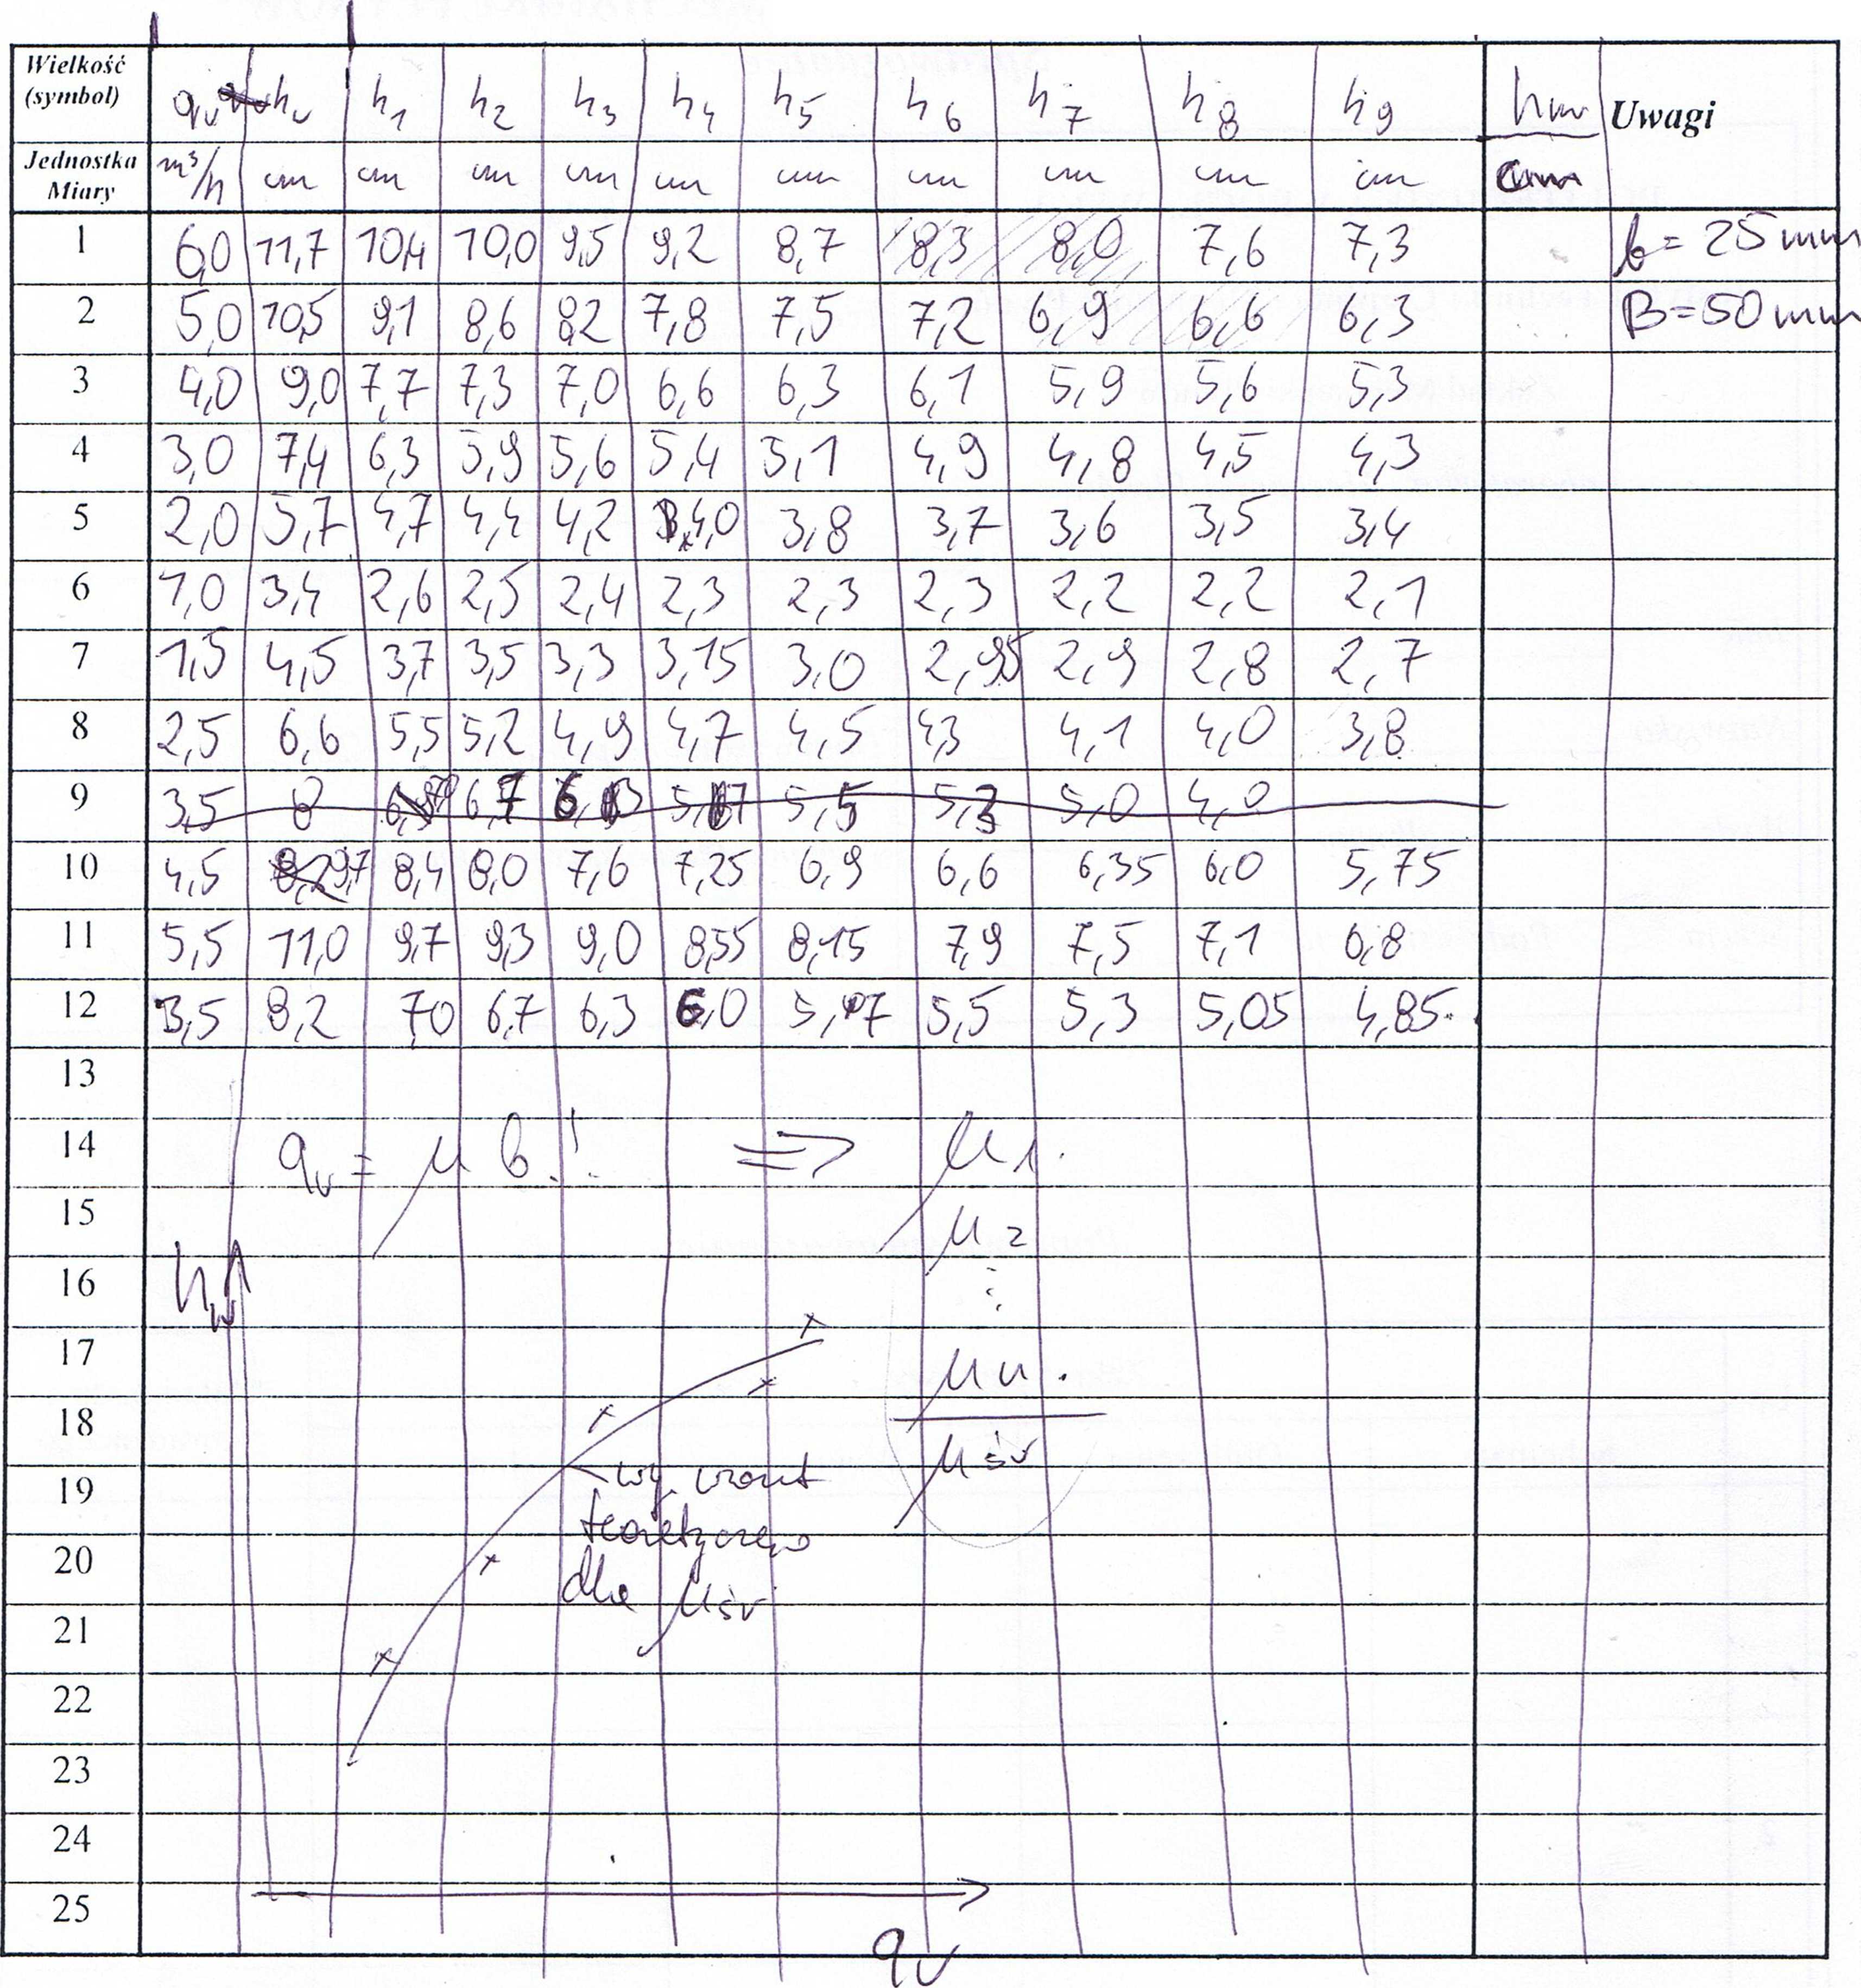 Wielkość (symbol) qv hv h1 h2 h3 h4 h5 h6 h7 h8 h9 hw Uwagi
Jednostka Miary m³/h cm cm cm cm cm cm cm cm cm cm cm
1 6,0 11,7 10,4 10,0 9,5 9,2 8,7 8,3 8,0 7,6 7,3 b = 25 mm
2 5,0 10,5 9,1 8,6 8,2 7,8 7,5 7,2 6,9 6,6 6,3 B = 50 mm
3 4,0 9,0 7,7 7,3 7,0 6,6 6,3 6,1 5,9 5,6 5,3
4 3,0 7,4 6,3 5,9 5,6 5,4 5,1 4,9 4,8 4,5 4,3
5 2,0 5,7 4,7 4,4 4,2 4,0 3,8 3,7 3,6 3,5 3,4
6 1,0 3,4 2,6 2,5 2,4 2,3 2,3 2,3 2,2 2,2 2,1
7 1,5 4,5 3,7 3,5 3,3 3,15 3,0 2,95 2,9 2,8 2,7
8 2,5 6,6 5,5 5,2 4,9 4,7 4,5 4,3 4,1 4,0 3,8
9 3,5 8 5,5 5,0 4,0
10 4,5 9,7 8,4 8,0 7,6 7,25 6,9 6,6 6,35 6,0 5,75
11 5,5 11,0 9,7 9,3 9,0 8,55 8,15 7,9 7,5 7,1 6,8
12 3,5 8,2 7,0 6,7 6,3 6,0 5,7 5,5 5,3 5,05 4,85
13
14 qv = μ b..! => μ1.
15 μ2
16 hw ⋮
17 μn.
18 μśr
19 wg wzoru
teoretycznego
20 dla μśr
21
22
23
24
25
qv